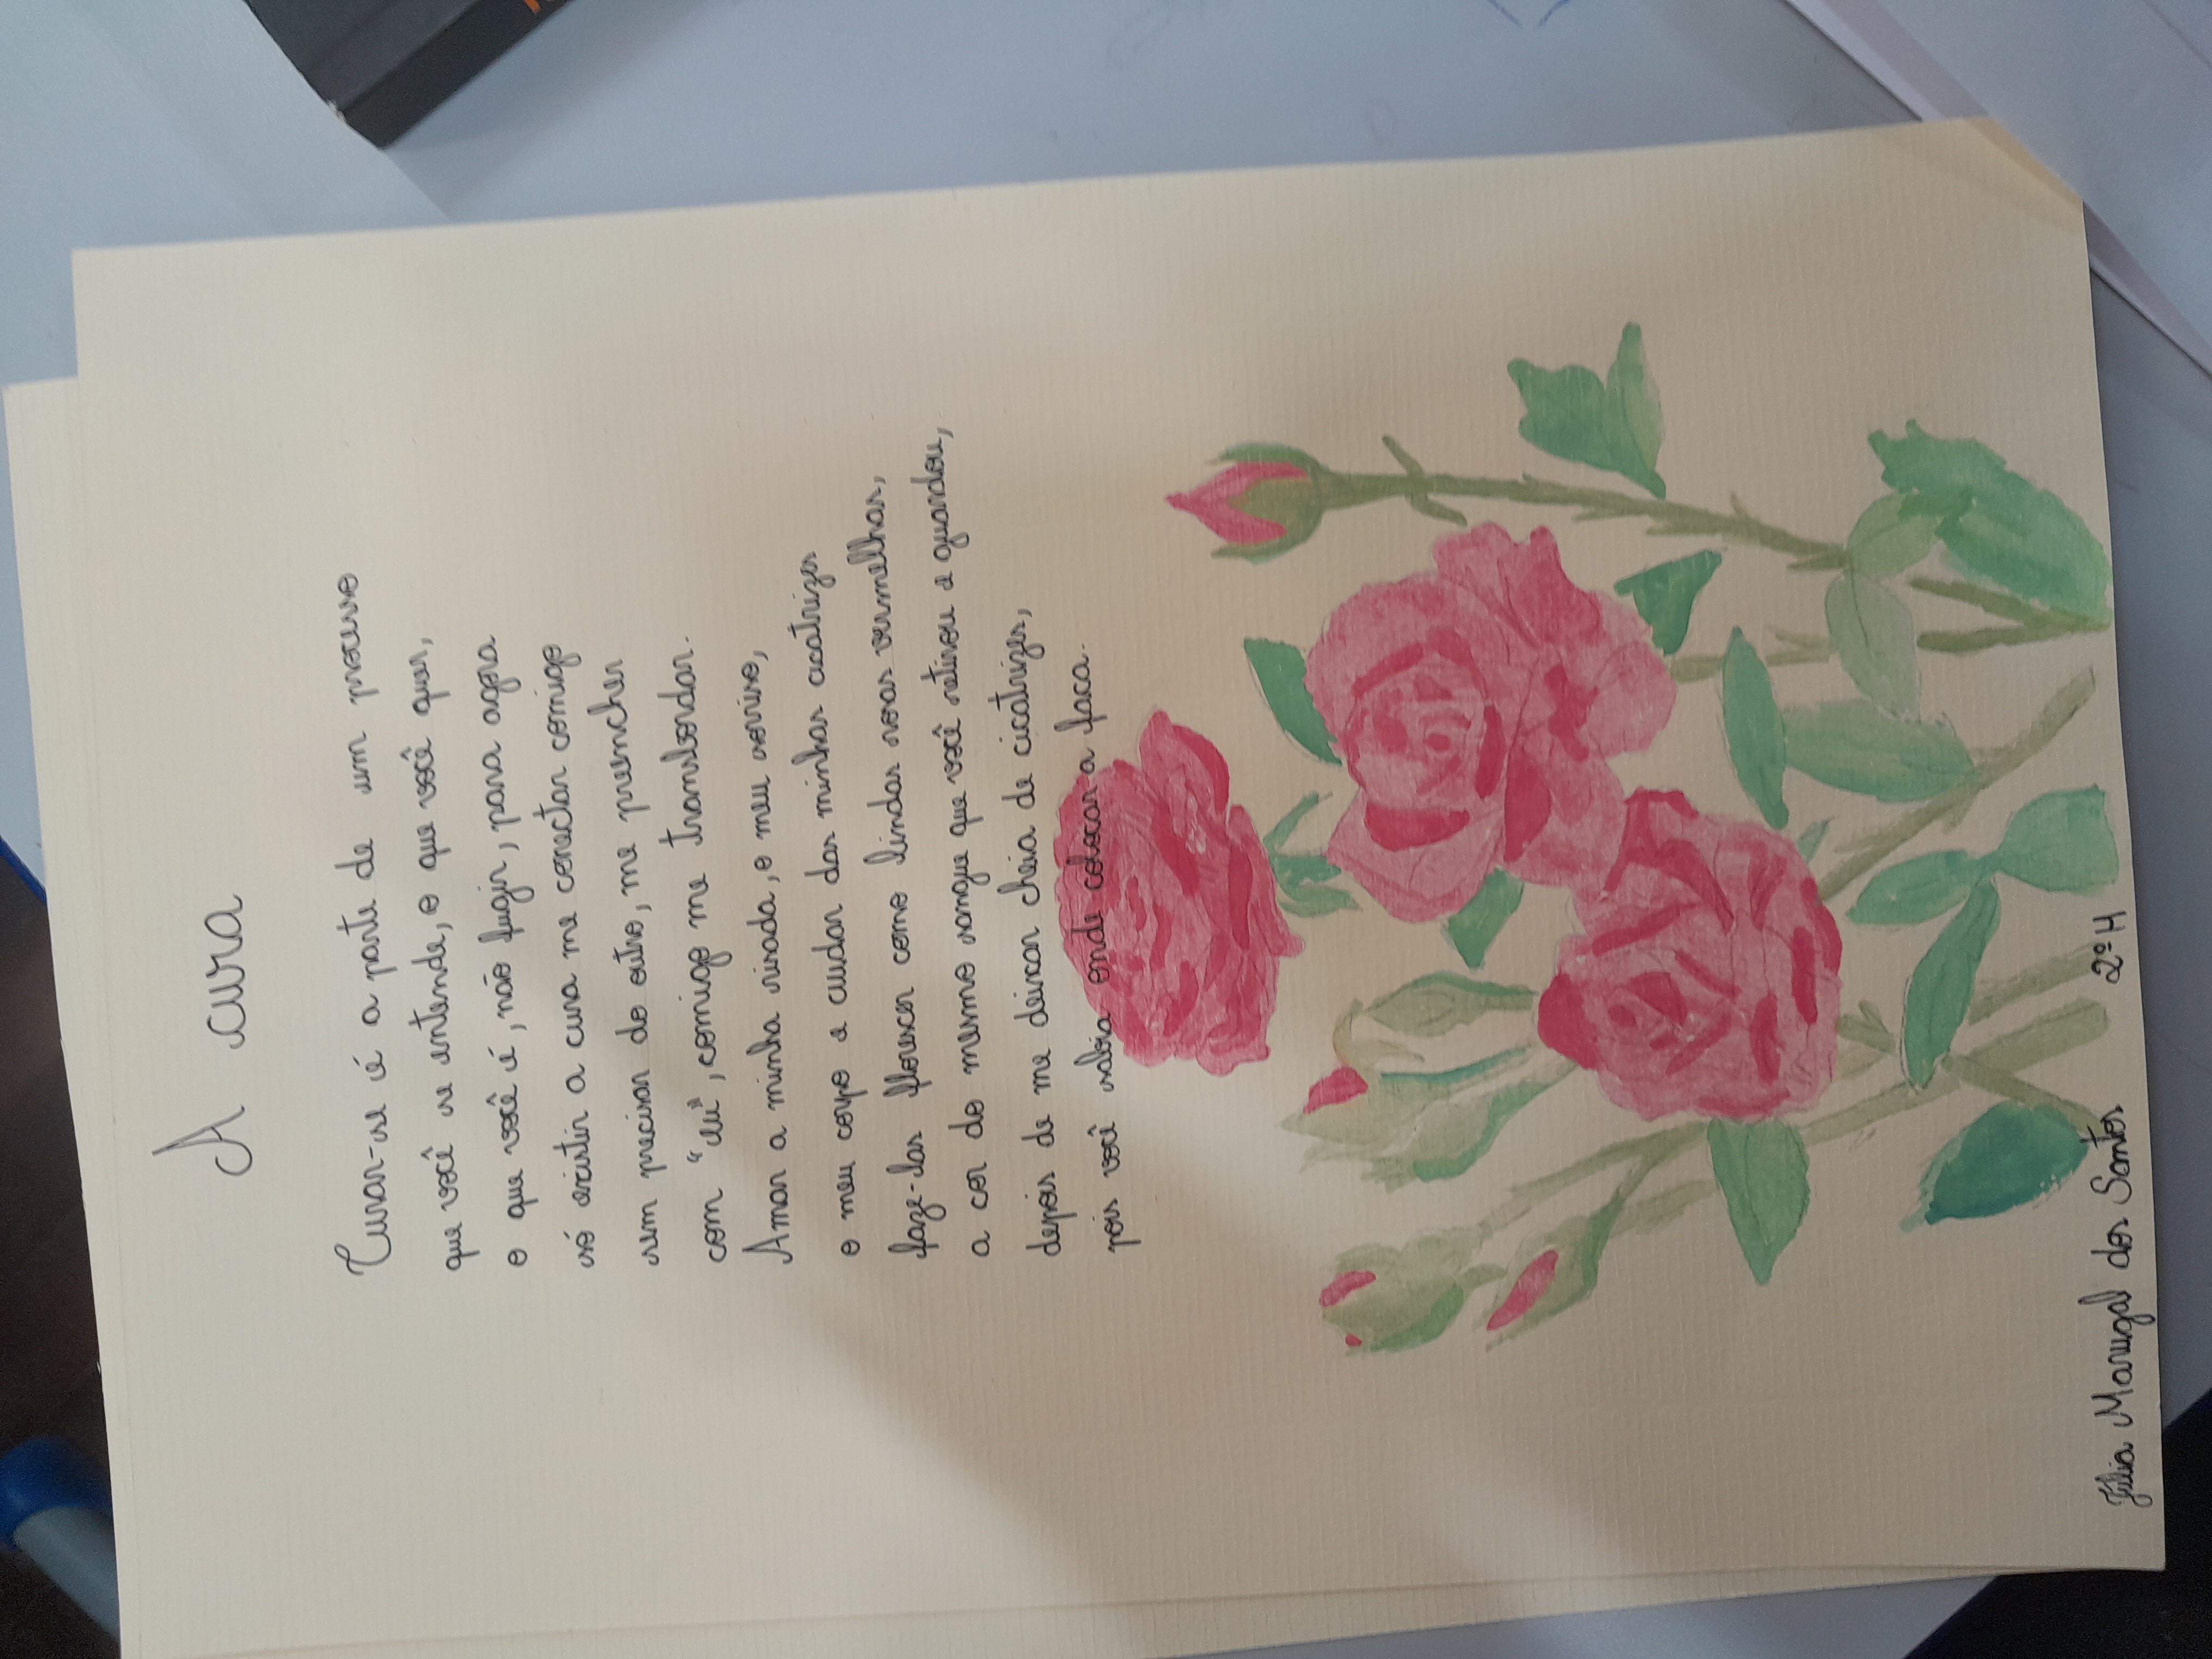 A cura
Curar-se é a parte de um processo
que você se entende, o que você quer,
o que você é, não fugir, para agora
só existir a cura me conectar comigo
sem precisar do outro, me preencher
com "eu", comigo me transbordar.
Amar a minha risada, o meu sorriso,
o meu corpo e cuidar das minhas cicatrizes
faze-las florescer como lindas rosas vermelhas,
a cor do mesmo sangue que você retirou e guardou,
depois de me deixar cheia de cicatrizes,
pois você sabia onde colocar a faca.
Júlia Marugal dos Santos 2º H